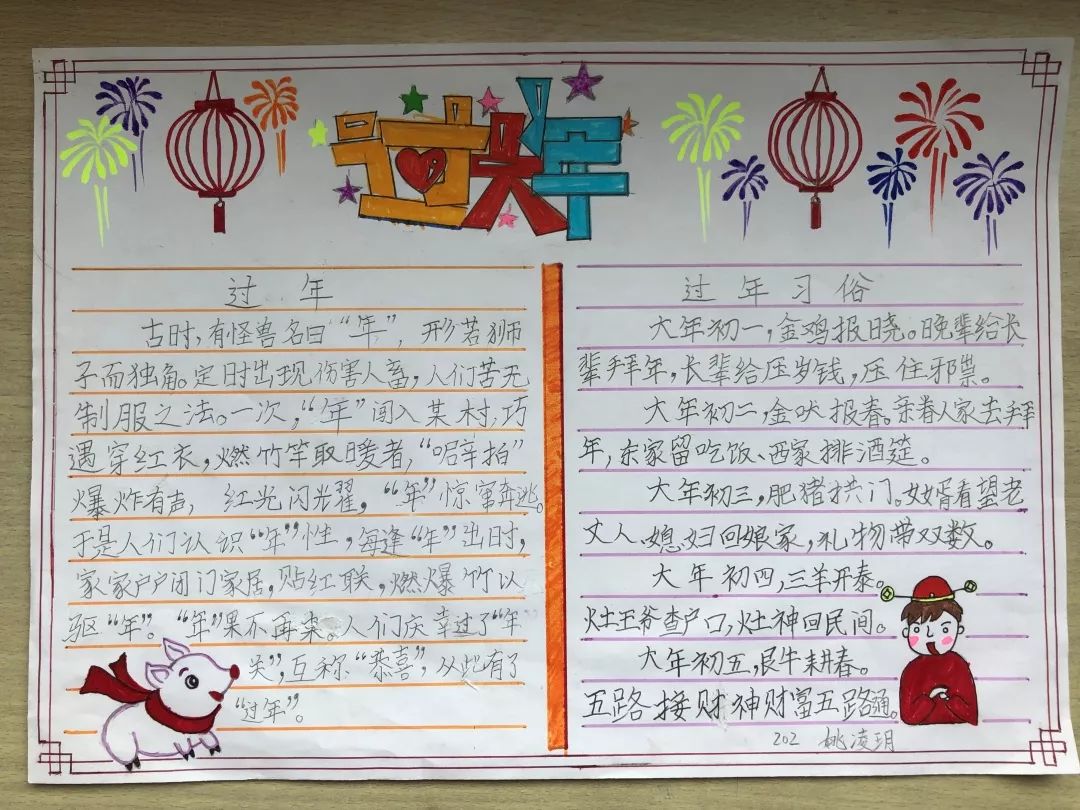 过年
过年
古时,有怪兽名曰“年”,形若狮
子而独角。定时出现伤害人畜,人们苦无
制服之法。一次,“年”闯入某村,巧
遇穿红衣,燃竹竿取暖者,“噼拍”
爆炸有声,红光闪光耀,“年”惊窜奔逃。
于是人们认识“年”性,每逢“年”出时,
家家户户闭门家居,贴红联,燃爆竹以
驱“年”。“年”果不再来。人们庆幸过了“年
关”,互称“恭喜”,从此有了
“过年”。
过年习俗
大年初一,金鸡报晓。晚辈给长
辈拜年,长辈给压岁钱,压住邪祟。
大年初二,金吠报春。亲眷人家去拜
年,东家留吃饭、西家排酒筵。
大年初三,肥猪拱门。女婿看望老
丈人、媳妇回娘家,礼物带双数。
大年初四,三羊开泰。
灶王爷查户口,灶神回民间。
大年初五,艮牛耕春。
五路接财神财富五路通。
202 姚凌玥